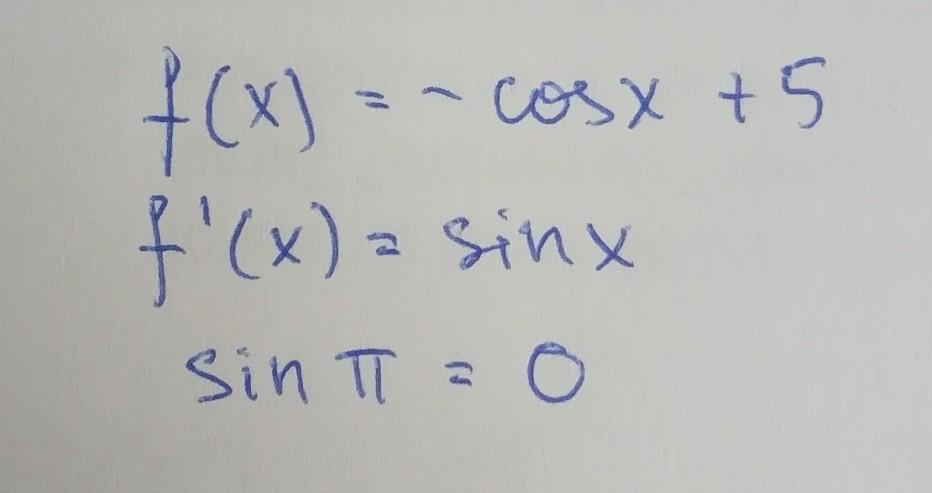 f(x) = - cosx + 5
f'(x) = sinx
sin π = 0